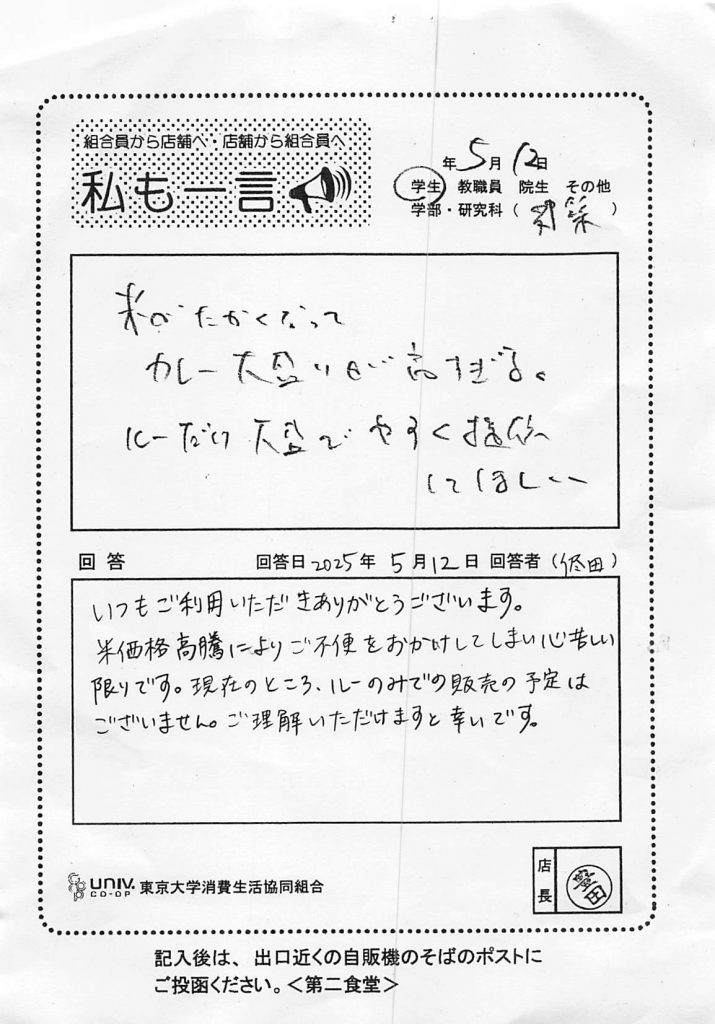 組合員から店舗へ・店舗から組合員へ
私も一言
年 5月 12日
学生 教職員 院生 その他
学部・研究科（ ）
米がたかくなって
カレー大盛りが高すぎる。
ルーだけ大盛でやすく提供
してほしい
回答 回答日2025年 5月12日 回答者（ 田）
いつもご利用いただきありがとうございます。
米価格高騰によりご不便をおかけしてしまい心苦しい
限りです。現在のところ、ルーのみでの販売の予定は
ございません。ご理解いただけますと幸いです。
UNIV. CO-OP 東京大学消費生活協同組合
店長
田
記入後は、出口近くの自販機のそばのポストに
ご投函ください。＜第二食堂＞